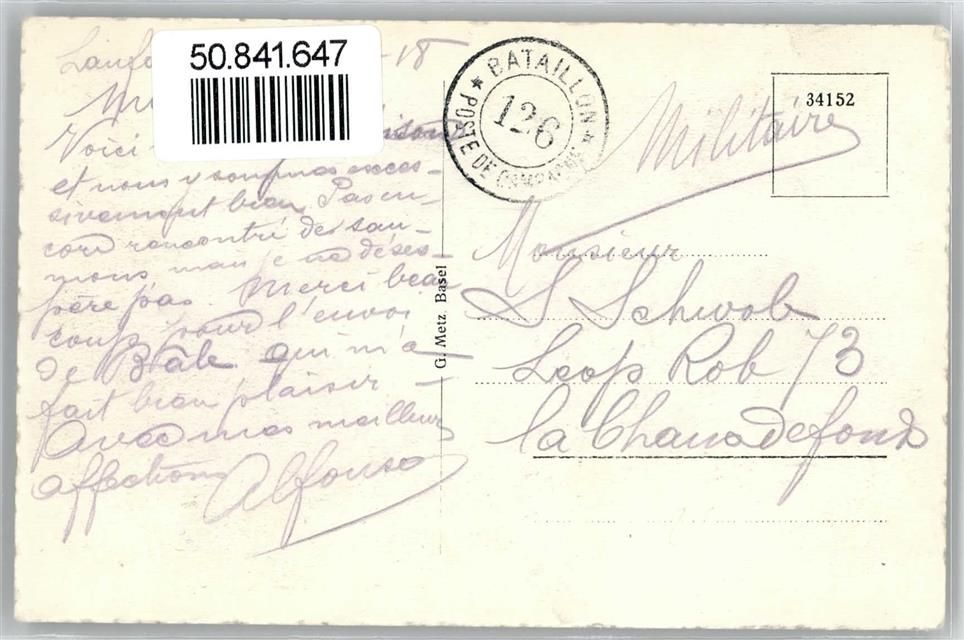 50.841.647
-18
Voici
et nous y sommes exces-
sivement bien. Pas en-
core rencontré de sau-
mons mais je ne déses-
père pas. Merci beau-
coup pour l'envoi
de Bâle qui m'a
fait bien plaisir -
Avec mes meilleures
affections Alfonse
G. Metz. Basel
★ BATAILLON ★
POSTE DE CAMPAGNE
126
Militaire
34152
Monsieur
S Schwob
Leop Rob 73
la Chauxdefonds